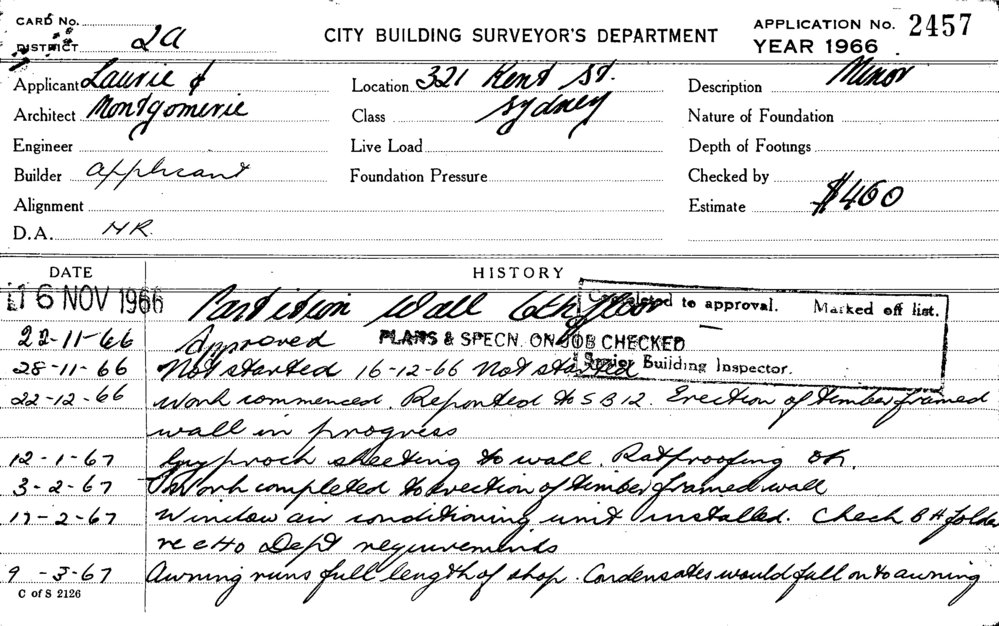 CARD No.
DISTRICT 2A
CITY BUILDING SURVEYOR'S DEPARTMENT
APPLICATION No. 2457
YEAR 1966
Applicant Laurie &
Architect Montgomerie
Engineer
Builder applicant
Alignment
D.A. HR.
Location 321 Kent St.
Class Sydney
Live Load
Foundation Pressure
Description Minor
Nature of Foundation
Depth of Footings
Checked by
Estimate $460
DATE HISTORY
16 NOV 1966 Partition Wall 6th floor
Completed to approval. Marked off list.
22-11-66 Approved PLANS & SPECN. ON JOB CHECKED
Senior Building Inspector.
28-11-66 Not started 16-12-66 Not started
22-12-66 Work commenced. Reported to SB12. Erection of timber framed
wall in progress
12-1-67 Gyprock sheeting to wall. Ratproofing OK.
3-2-67 Work completed to erection of timber framed wall
17-2-67 Window air conditioning unit installed. Check BA folder
re CHO Dept requirements
9-3-67 Awning runs full length of shop. Condensates would fall on to awning
C of S 2126